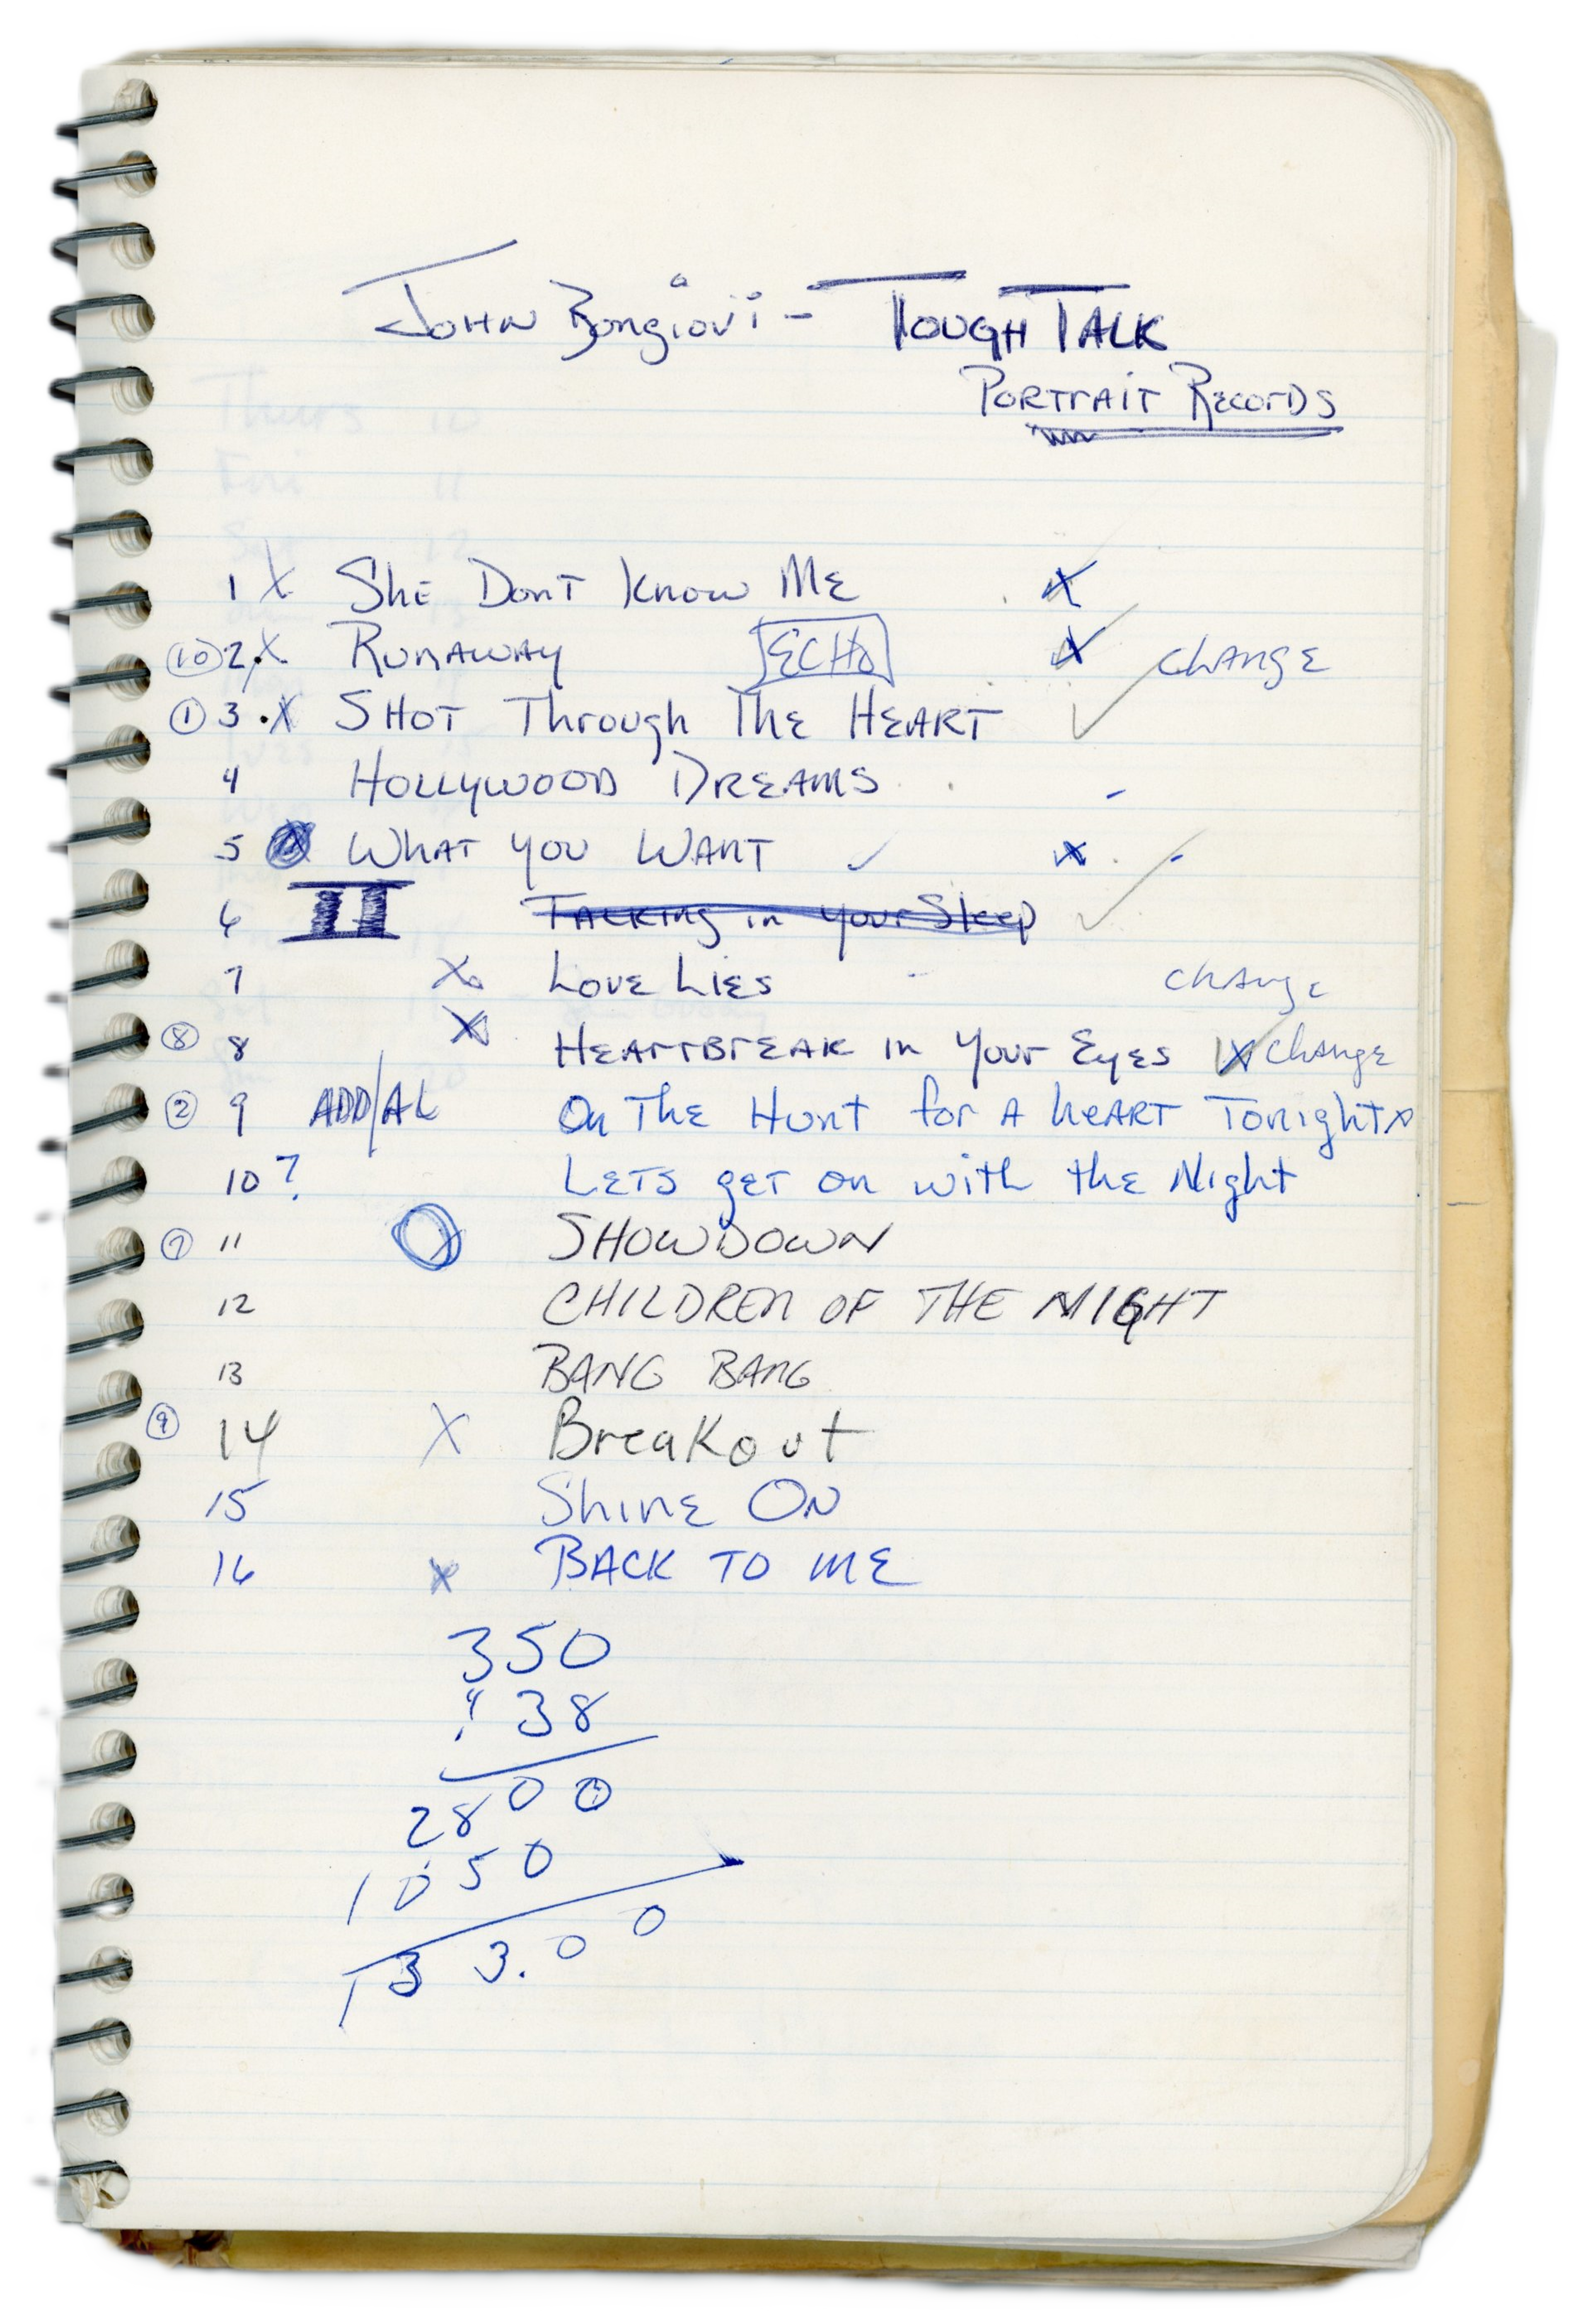 John Bongiovi - Tough Talk
Portrait Records
1 X She Dont Know Me X
(10) 2. X Runaway ECHO X change
(1) 3 . X Shot Through The Heart ✓
4 Hollywood Dreams -
5 X What you Want ✓ X . -
6 II Talking in your Sleep ✓
7 X. Love Lies - change
(8) 8 X Heartbreak in Your Eyes X change
(2) 9 ADD/AL On The Hunt for A heart Tonight
10 ? Lets get on with the Night
(7) 11 X SHOWDOWN
12 CHILDREN OF THE NIGHT
13 BANG BANG
(9) 14 X Breakout
15 Shine On
16 X BACK TO ME
350
38
2800
1050
133.00